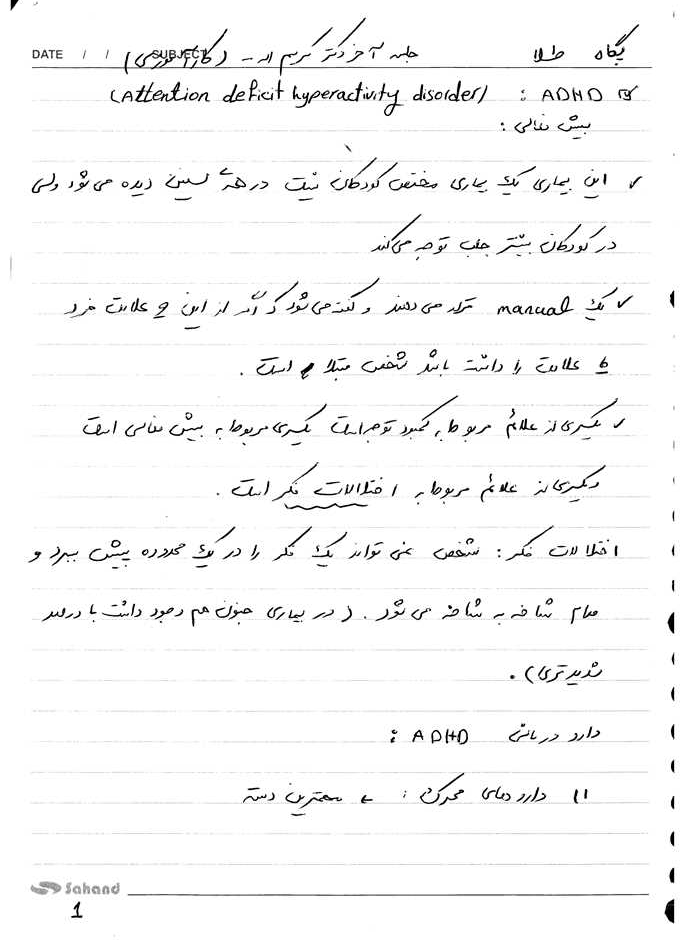 پگاه طلا جلسه آخر دکتر کریم اله - (کارآموزی)
DATE / / SUBJECT
ADHD : (Attention deficit hyperactivity disorder)
بیش فعالی :
✓ این بیماری یک بیماری مختص کودکان نیست در همهٔ سنین دیده می شود ولی
در کودکان بیشتر جلب توجه می کند
✓ یک manual قرار می دهند و گفته می شود که اگر از این 9 علامت فرد
6 علامت را داشته باشد شخص مبتلا است .
✓ یکسری از علائم مربوط به کمبود توجه است یکسری مربوط به بیش فعالی است
و یکسری از علائم مربوط به اختلالات فکر است .
اختلالات فکر : شخص نمی تواند یک فکر را در یک محدوده پیش ببرد و
مدام شاخه به شاخه می شود . ( در بیماری جنون هم وجود داشت با درصد
شدیدتری) .
دارو درمانی ADHD :
1) داروهای محرک : ← مهمترین دسته
Sahand
1